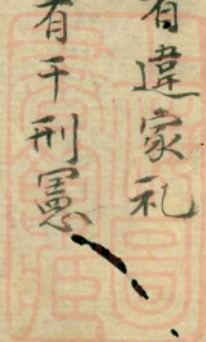 有違家礼
有干刑憲